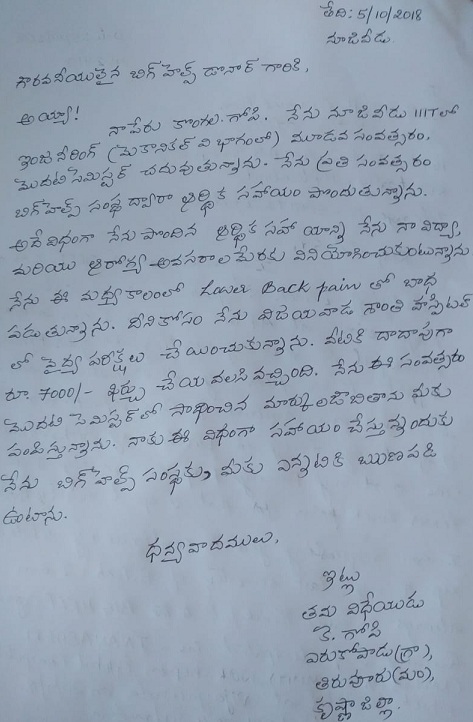 తేది: 5/10/2018
నూజివీడు.
గౌరవనీయులైన బిగ్ హెల్ప్ డొనార్ గారికి,
అయ్యా!
నాపేరు కొంగల. గోపి. నేను నూజివీడు IIITలో
ఇంజనీరింగ్ (మెకానికల్ విభాగంలో) మూడవ సంవత్సరం,
మొదటి సెమిస్టర్ చదువుతున్నాను. నేను ప్రతి సంవత్సరం
బిగ్ హెల్ప్ సంస్థ ద్వారా ఆర్థిక సహాయం పొందుతున్నాను.
అదే విధంగా నేను పొందిన ఆర్థిక సహాయాన్ని నేను నా విద్యా,
మరియు ఆరోగ్య అవసరాల మేరకు వినియోగించుకుంటున్నాను
నేను ఈ మధ్యకాలంలో Lower Back pain తో బాధ
పడుతున్నాను. దీనికోసం నేను విజయవాడ శాంతి హాస్పిటల్
లో వైద్య పరీక్షలు చేయించుకున్నాను. వీటికి దాదాపుగా
రూ. 7000/- ఖర్చు చేయవలసి వచ్చింది. నేను ఈ సంవత్సరం
మొదటి సెమిస్టర్ లో సాధించిన మార్కుల జాబితాను మీకు
పంపిస్తున్నాను. నాకు ఈ విధంగా సహాయం చేస్తున్నందుకు
నేను బిగ్ హెల్ప్ సంస్థకు, మీకు ఎన్నటికి ఋణపడి
ఉంటాను.
ధన్యవాదములు,
ఇట్లు
తమ విధేయుడు
కె. గోపి
ఎరుకోపాడు(గ్రా),
తిరువూరు(మం),
కృష్ణా జిల్లా.